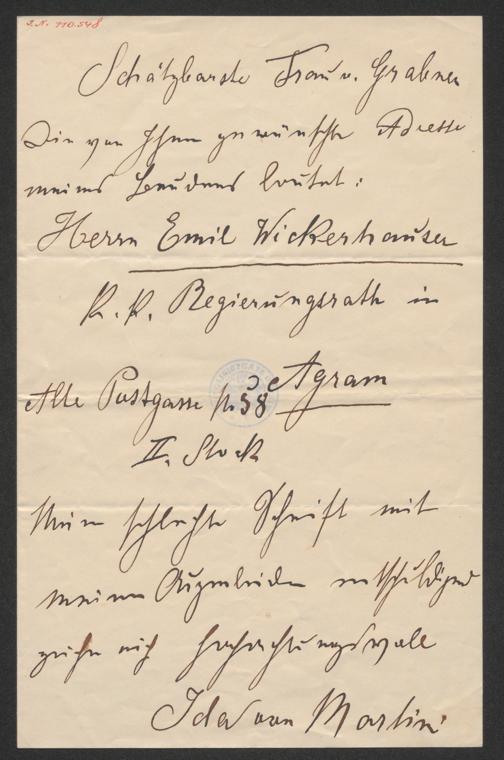 I.N. 110.548
Schätzbarste Frau v. Grabner
Die von Ihnen gewünschte Adresse
meines Bruders lautet:
Herrn Emil Wickerhauser
K. K. Regierungsrath in
Agram
Alte Postgasse 58
II. Stock
Meine schlechte Schrift mit
meinem Augenleiden entschuldigend
zeichne mich hochachtungsvoll
Ida von Martini